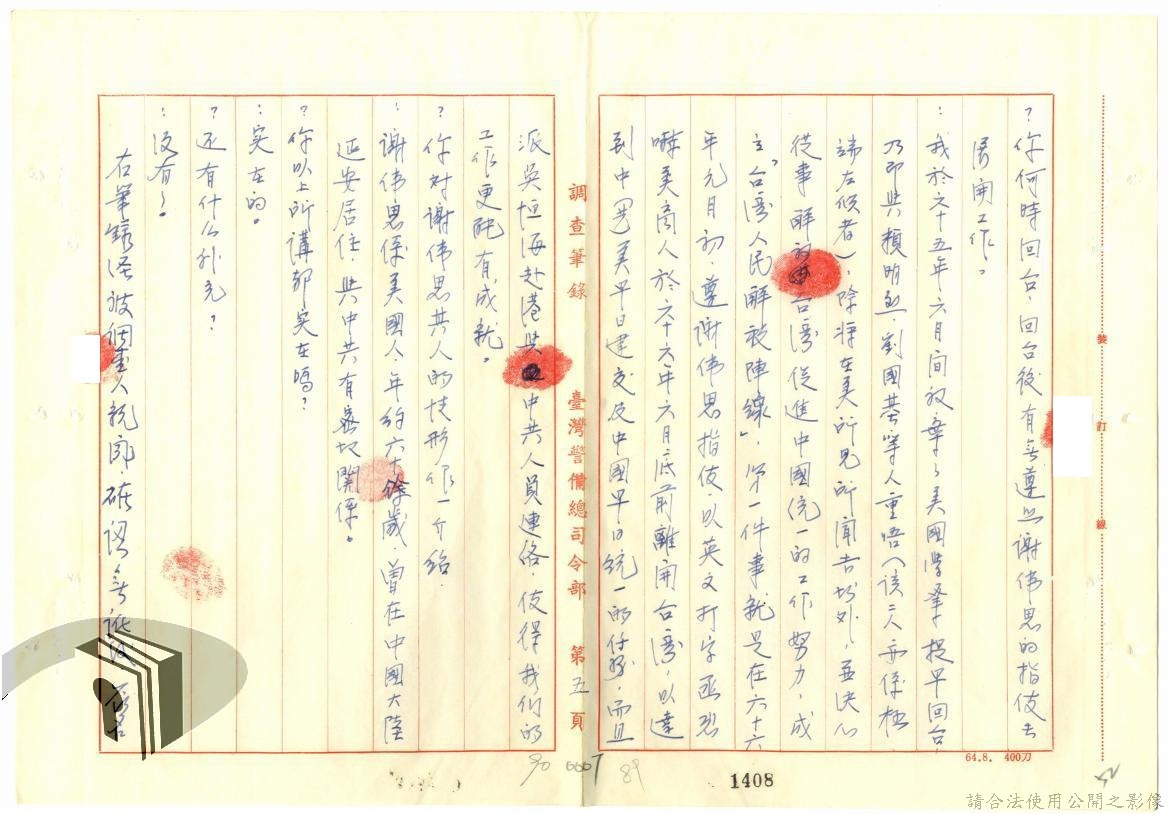 ？你何時回台，回台後有無遵照謝偉思的指使去
展開工作。
：我於六十五年六月間放棄了美國學業提早回台，
乃即與賴明烈、劉國基等人重晤（該二人亦係極
端左傾者），除將在美所見所聞告訴外，並決心
從事解放台灣促進中國統一的工作努力，成
立「台灣人民解放陣線」，第一件事就是在六十六
年元月初，遵謝偉思指使，以英文打字函恐
嚇美商人於六十六年六月底前離開台灣，以達
到中（匪）美早日建交及中國早日統一的任務，而且
調查筆錄 臺灣警備總司令部 第五頁
派吳恒海赴港與中共人員連絡，使得我們的
工作更能有成就。
？你對謝偉思其人的情形作一介紹．
：謝偉思係美國人，年約六十餘歲，曾在中國大陸
延安居住，與中共有密切關係。
？你以上所講都实在嗎？
：实在的。
？还有什么补充？
：没有了。
右筆錄經被偵查人親閱，確認無訛後
裝 訂 線
64.8. 400刀
90 89
1408
請合法使用公開之影像